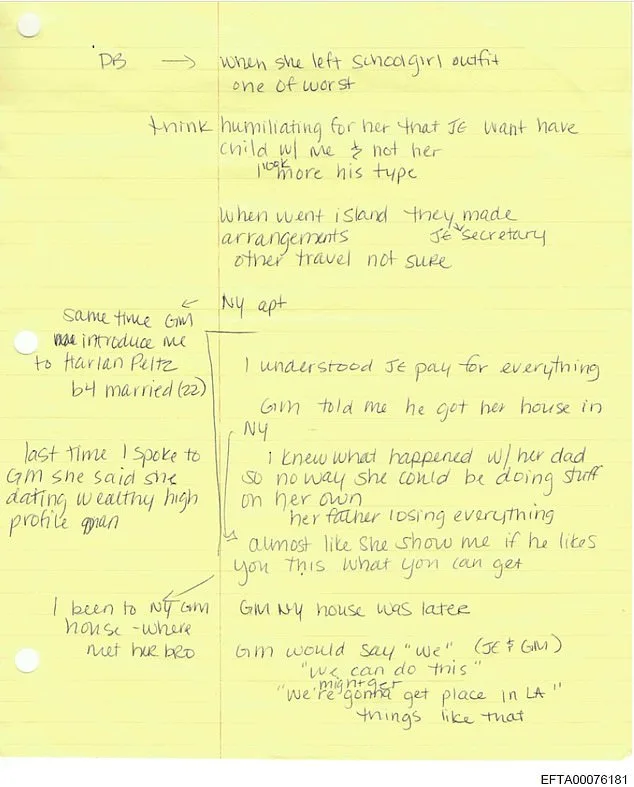 DB → when she left schoolgirl outfit
one of worst
think humiliating for her that JE want have
child w/ me & not her
I look more his type
When went island they made
arrangements JE secretary
other travel not sure
← NY apt
same time GM
introduce me
to Harlan Peltz
b4 married (22)
I understood JE pay for everything
GM told me he got her house in
NY
last time I spoke to
GM she said she
dating wealthy high
profile man
I knew what happened w/ her dad
so no way she could be doing stuff
on her own
her father losing everything
almost like she show me if he likes
you this what you can get
I been to NY GM
house - where
met her bro
GM NY house was later
GM would say "we" (JE & GM)
"we can do this"
might get
"we're gonna get place in LA"
things like that
EFTA00076181